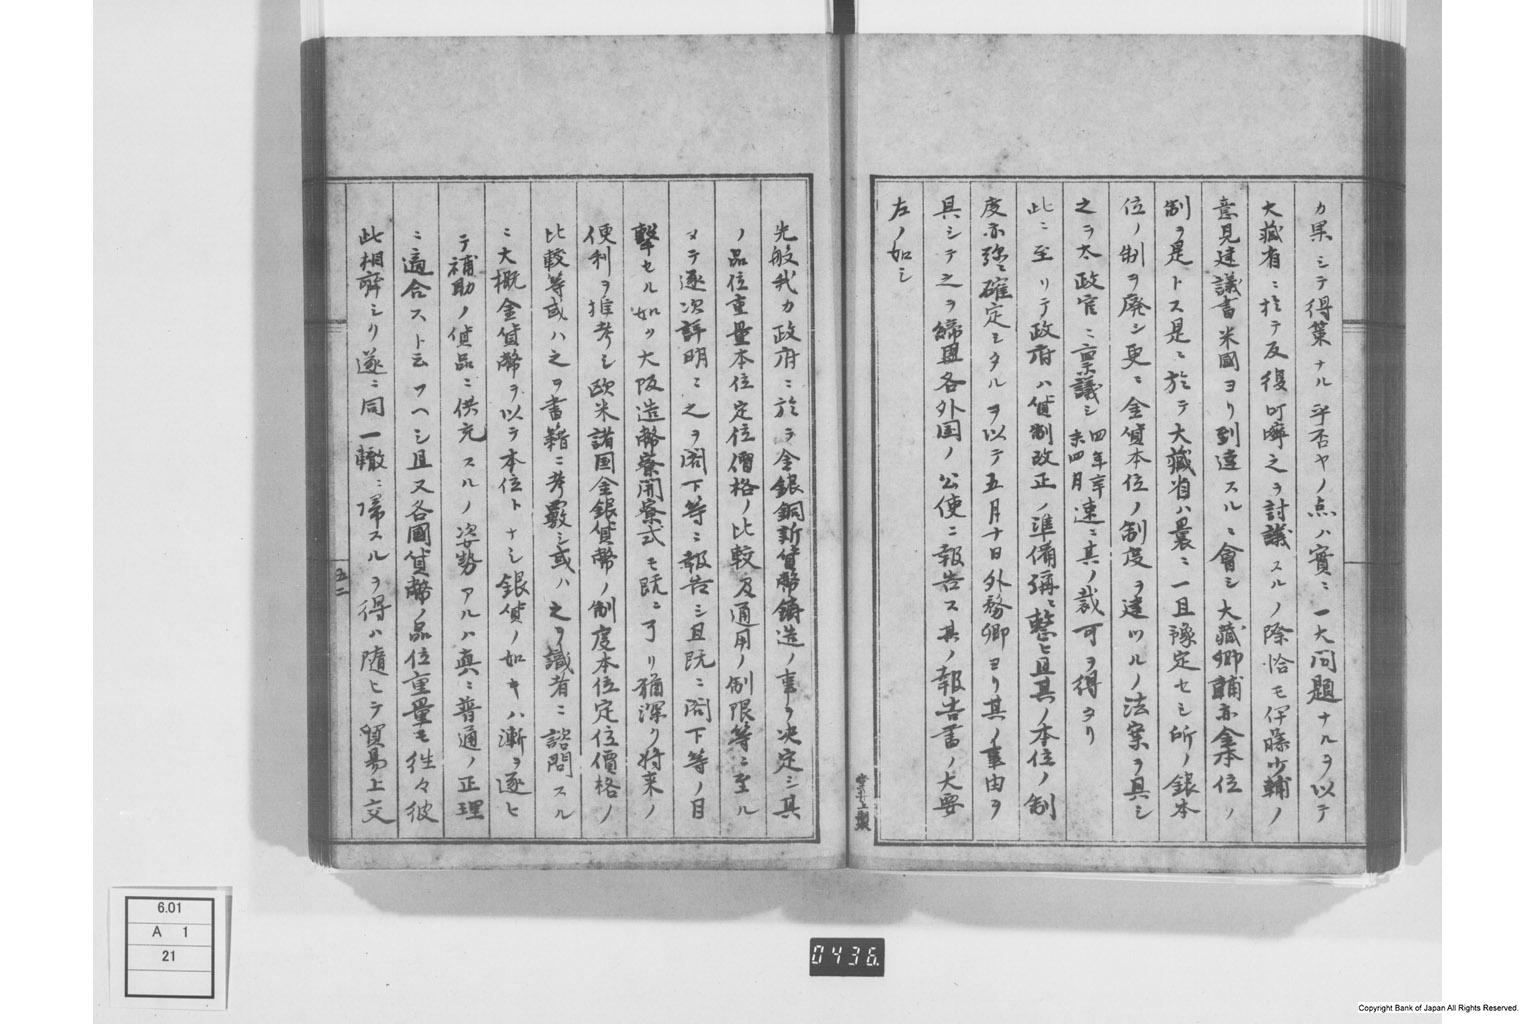 カ果シテ得策ナル乎否ヤノ点ハ實ニ一大问題ナルヲ以テ
大藏省ニ於テ反復叮嚀之ヲ討議スルノ際恰モ伊藤少輔ノ
意見建議書米國ヨリ到達スルニ會シ大藏卿輔亦金本位ノ
制ヲ是トス是ニ於テ大藏省ハ曩ニ一且豫定セシ所ノ銀本
位ノ制ヲ廃シ更ニ金貨本位ノ制度ヲ建ツルノ法案ヲ具シ
之ヲ太政官ニ稟議シ四年辛未四月速ニ其ノ裁可ヲ得タリ
此ニ至リテ政府ハ貨制改正ノ準備彌ニ整ヒ且其ノ本位ノ制
度亦弥ニ確定シタルヲ以テ五月十日外務卿ヨリ其ノ事由ヲ
具シテ之ヲ締盟各外国ノ公使ニ報告ス其ノ報告書ノ大要
左ノ如シ
先般我カ政府ニ於テ金銀銅新貨幣鑄造ノ事ヲ决定シ其
ノ品位重量本位定位價格ノ比較及通用ノ制限等ニ至ル
マテ逐次詳明ニ之ヲ閣下等ニ報告シ且既ニ閣下等ノ目
擊セル如ク大阪造幣寮開寮式モ既ニ了リ猶深ク将来ノ
便利ヲ推考シ欧米諸国金銀貨幣ノ制度本位定位價格ノ
比較等或ハ之ヲ書籍ニ考覈シ或ハ之ヲ識者ニ諮問スル
ニ大概金貨幣ヲ以テ本位トナシ銀貨ノ如キハ漸ヲ逐ヒ
テ補助ノ貨品ニ供充スルノ姿勢アルハ真ニ普通ノ正理
ニ適合スト云フヘシ且又各國貨幣ノ品位重量モ往々彼
此相齊シク遂ニ同一轍ニ帰スルヲ得ハ随ヒテ貿易上交
五二
6.01
A 1
21
0436.
Copyright Bank of Japan All Rights Reserved.